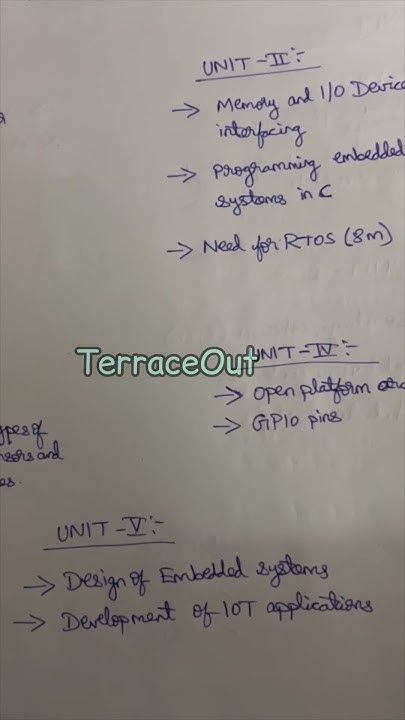 UNIT-II:-
→ Memory and I/O Device
interfacing
→ Programming embedded
systems in C
→ Need for RTOS (8m)
TerraceOut
UNIT-IV:-
→ Open platform
→ GPIO pins
ypes of
sors and
es.
UNIT-V:-
→ Design of Embedded systems
→ Development of IOT applications